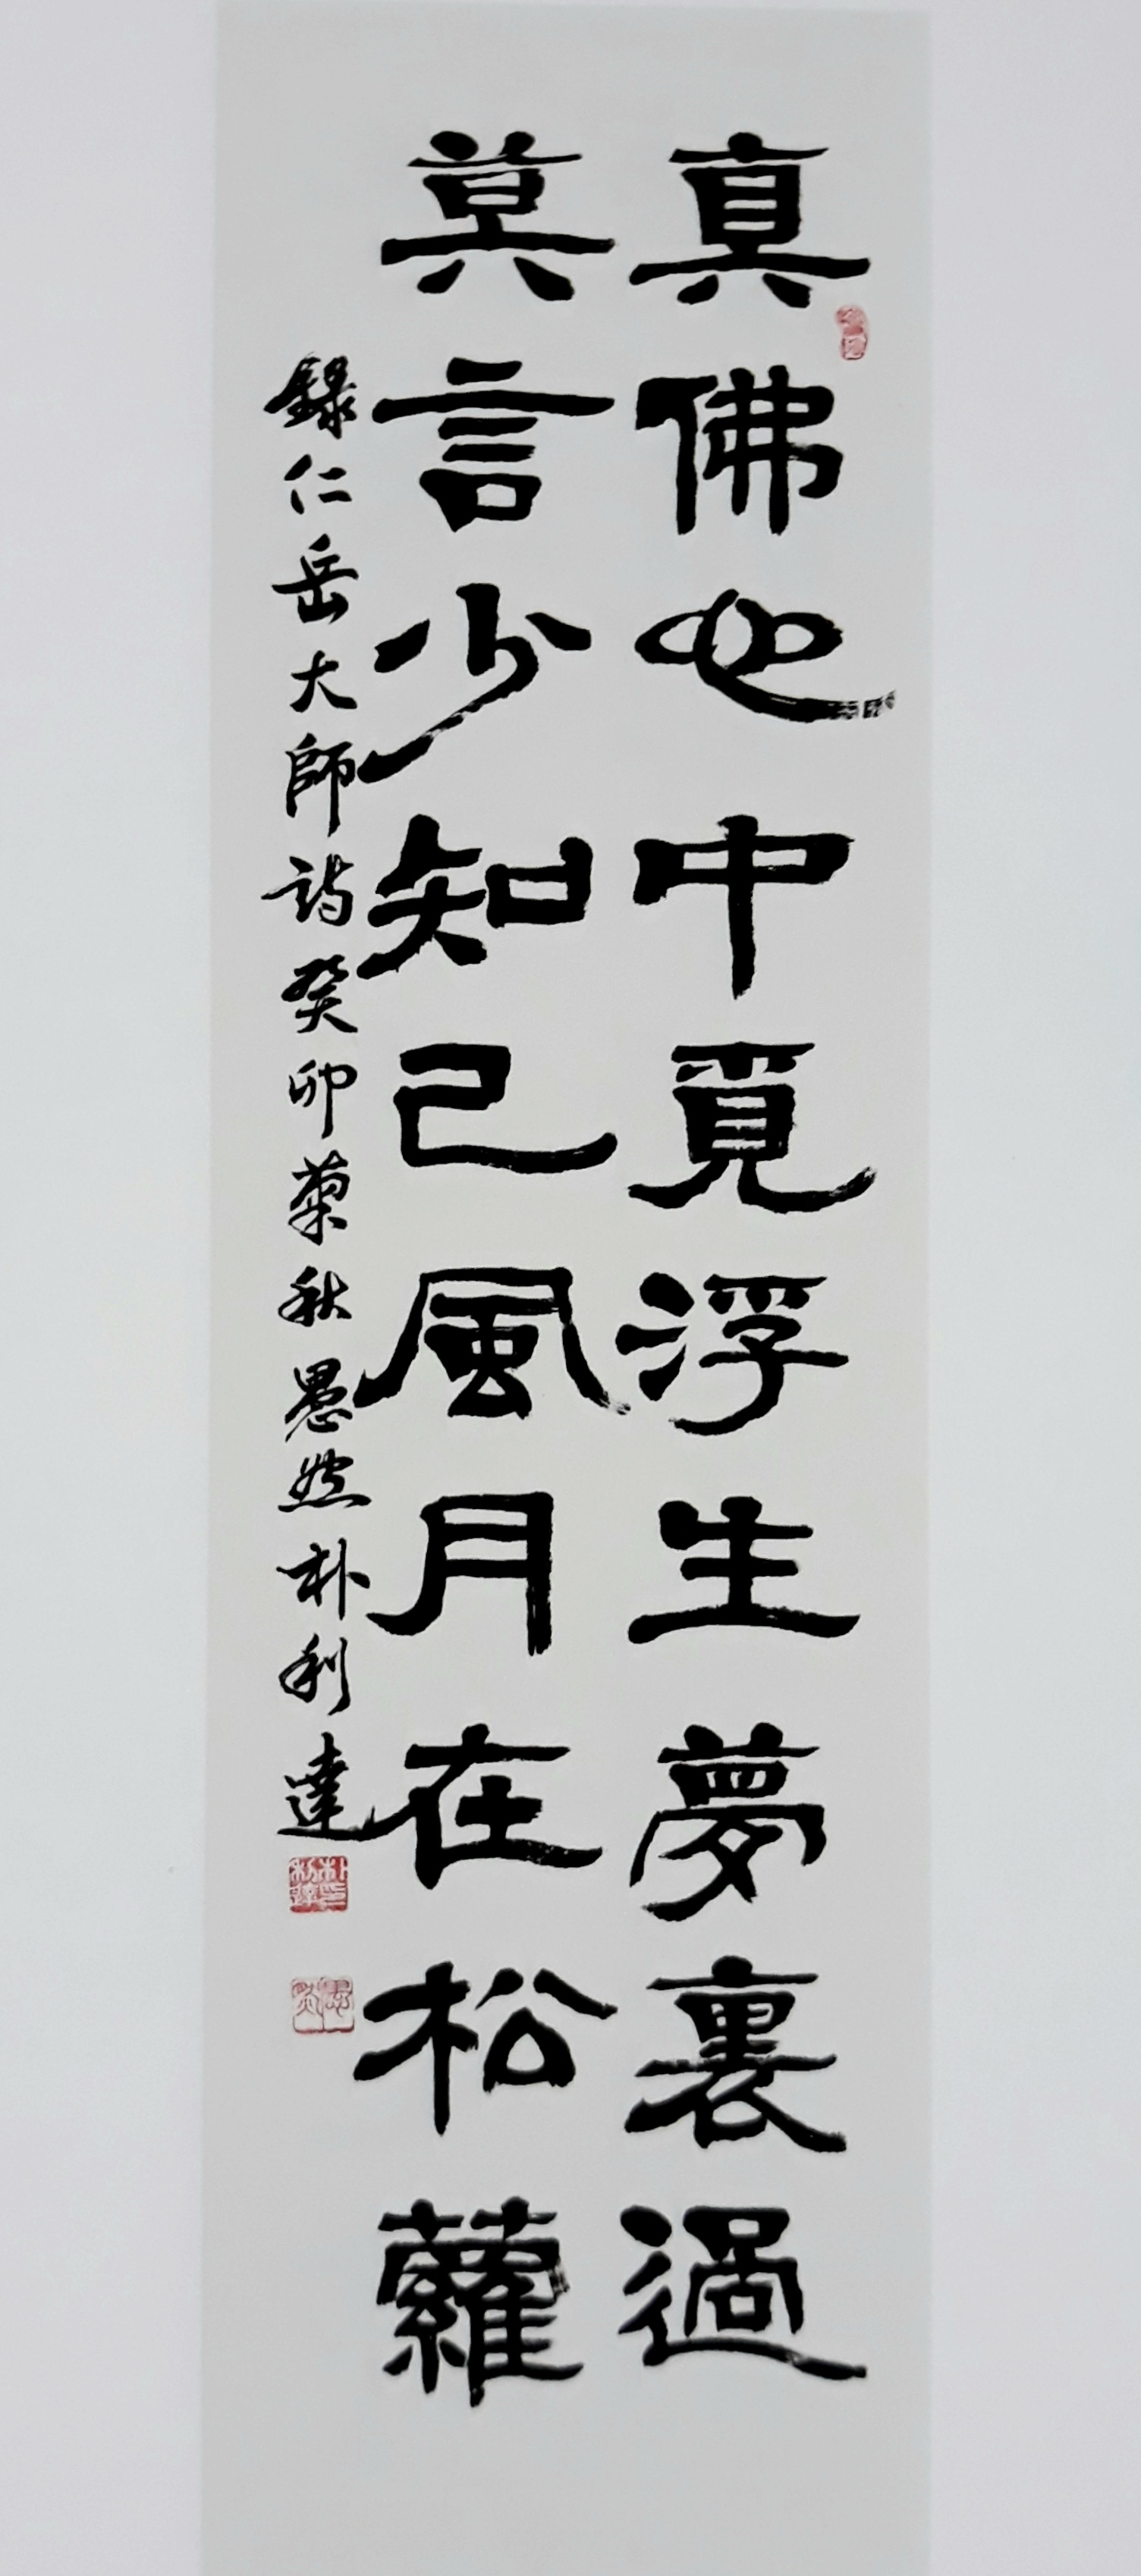 真佛心中覓浮生夢裏過
莫言少知己風月在松蘿
錄仁岳大師詩癸卯菊秋愚然朴利達